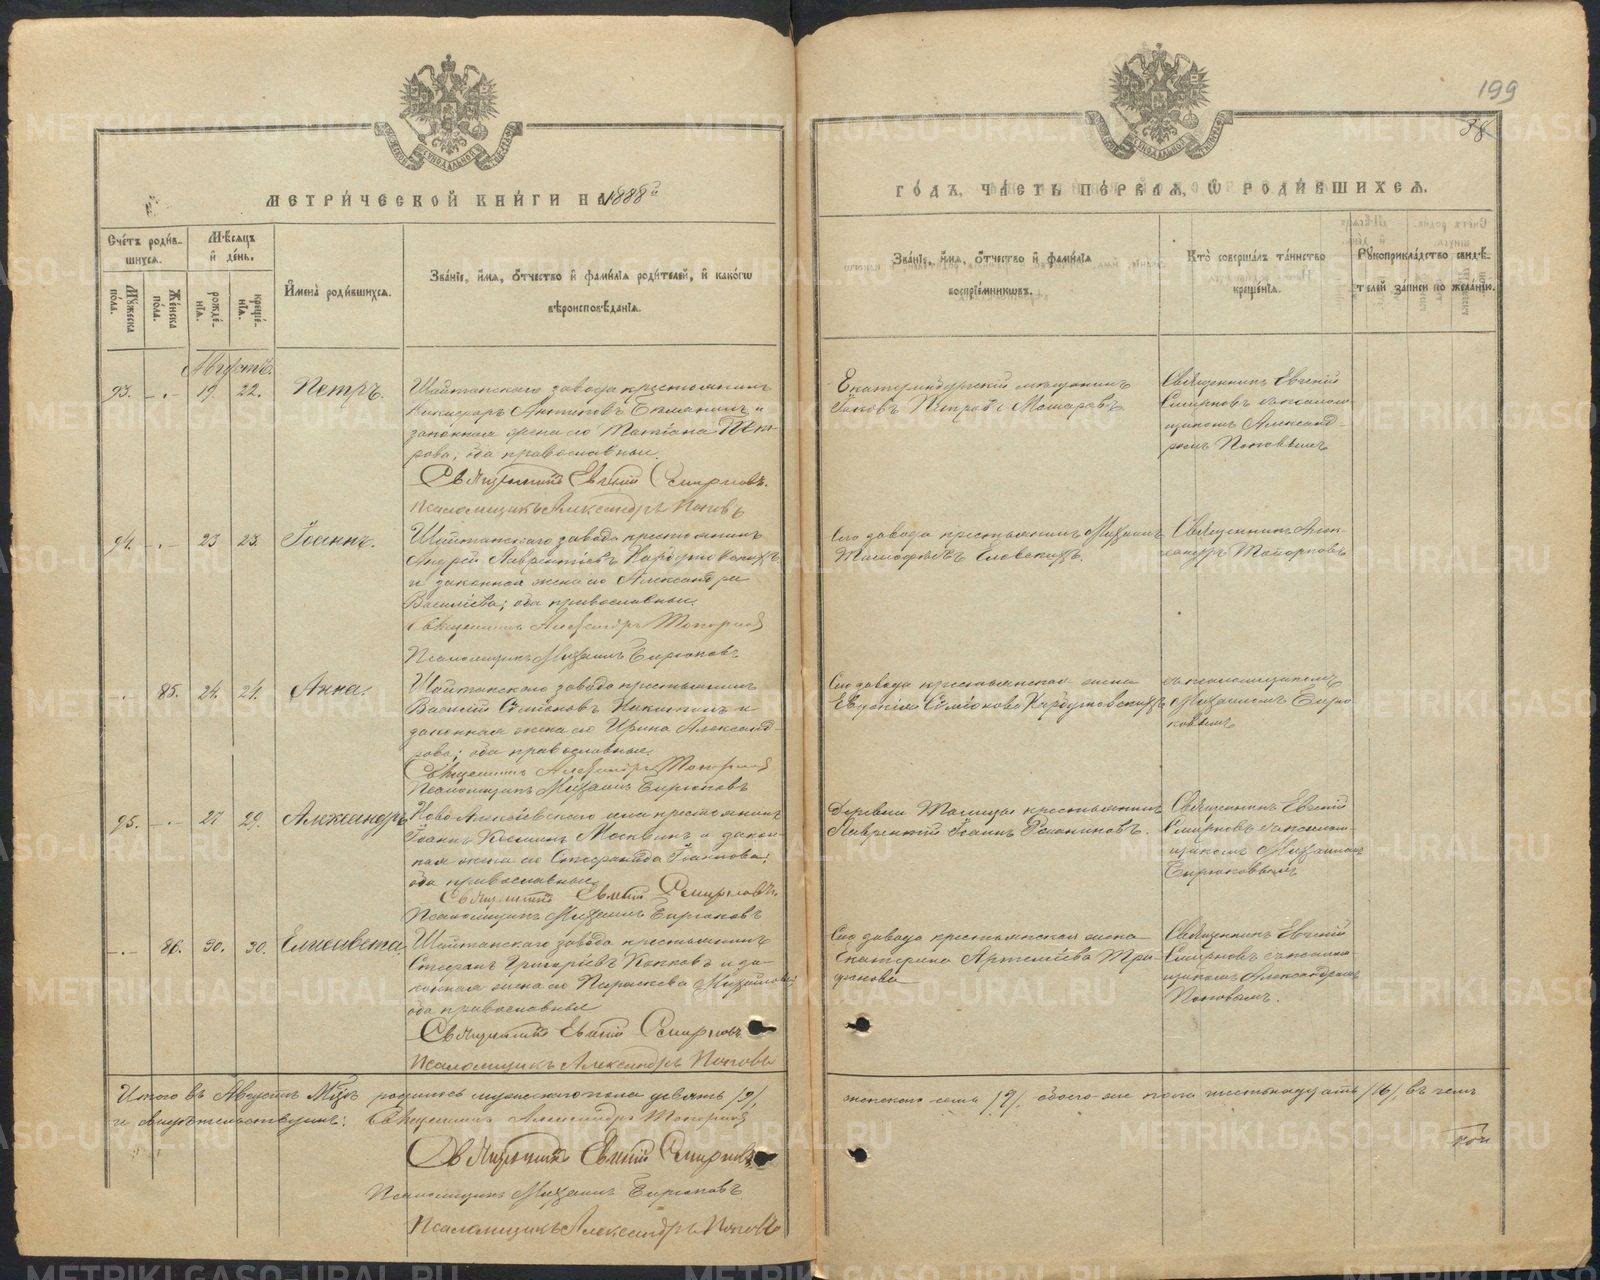 199
38
МЕТРИЧЕСКОЙ КНИГИ НА 1888й
ГОДЪ, ЧАСТЬ ПЕРВАЯ, Ѡ РОДИВШИХСЯ.
Счетъ родив-
шихся.
Мѣсяцъ
и день.
Мужеска
пола.
Женска
пола.
рожде-
нія.
креще-
нія.
Имена родившихся.
Званіе, имя, отчество и фамилія родителей, и какогѡ
вѣроисповѣданія.
Званіе, имя, отчество и фамилія
воспріемниковъ.
Кто совершалъ таинство
крещенія.
Рукоприкладство свидѣ-
телей записи по желанію.
Августъ.
93. -.- 19. 22. Петръ.
Шайтанскаго завода крестьянинъ
Никифоръ Антиповъ и
законная жена его Татіана Пет-
рова; оба православные.
Священникъ Евгеній Смирновъ.
Псаломщикъ Александръ Поповъ
Екатеринбургскій мещанинъ
Іаковъ Петровъ
Священникъ Евгеній
Смирновъ съ псалом-
щикомъ Александ-
ромъ Поповымъ
94. -.- 23 23. Іоаннъ.
Шайтанскаго завода крестьянинъ
Андрей Лаврентіевъ
и законная жена его Александра
Василіева; оба православные.
Священникъ Александръ Топорковъ
Псаломщикъ Михаилъ Бирюковъ
Сего завода крестьянинъ Михаилъ
Тимофѣевъ Еловскихъ.
Священникъ Алек-
сандръ Топорковъ
-.- 85. 24. 24. Анна.
Шайтанскаго завода крестьянинъ
Василій Симіоновъ Никитинъ и
законная жена его Ирина Александ-
рова; оба православные.
Священникъ Александръ Топорковъ
Псаломщикъ Михаилъ Бирюковъ
Сего завода крестьянская жена
Евдокія Симіонова
съ псаломщикомъ
Михаиломъ Бирю-
ковымъ
95. -.- 27 29. Александръ
Ново Алексѣевскаго села крестьянинъ
Іоаннъ Косминъ Москвинъ и закон-
ная жена его Стефанида Іоаннова;
оба православные.
Священникъ Евгеній Смирновъ.
Псаломщикъ Михаилъ Бирюковъ
Деревни Талицы крестьянинъ
Лаврентій Іоанновъ
Священникъ Евгеній
Смирновъ съ псалом-
щикомъ Михаиломъ
Бирюковымъ
-.- 86. 30. 30. Елисавета
Шайтанскаго завода крестьянинъ
Стефанъ Григоріевъ Коковъ и за-
конная жена его Параскева Михайлова;
оба православные
Священникъ Евгеній Смирновъ
Псаломщикъ Александръ Поповъ
Сего завода крестьянская жена
Екатерина Артеміева Три-
фонова
Священникъ Евгеній
Смирновъ съ псалом-
щикомъ Александромъ
Поповымъ.
Итого въ Августѣ Мцѣ родилось мужескаго пола девять /9/,
женскаго семь /7/, обоего-же пола шестьнадцать /16/, въ чемъ
и свидѣтельствуемъ: Священникъ Александръ Топорковъ
Священникъ Евгеній Смирновъ
Псаломщикъ Михаилъ Бирюковъ
Псаломщикъ Александръ Поповъ
METRIKI.GASO-URAL.RU